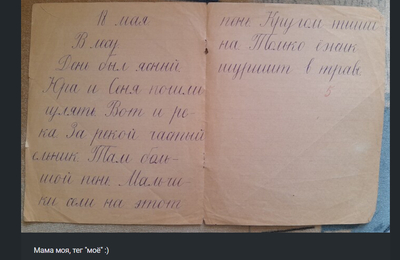 18 мая
В лесу
День был ясний
Юра и Соня пошли
гулять Вот и ре-
ка За рекой частий
ельник Там боль-
шой пень Мальчи-
ки сели на этот
пень Кругом тиши
на Только ёжик
шуршит в траве
5
Мама моя, тег "моё" :)